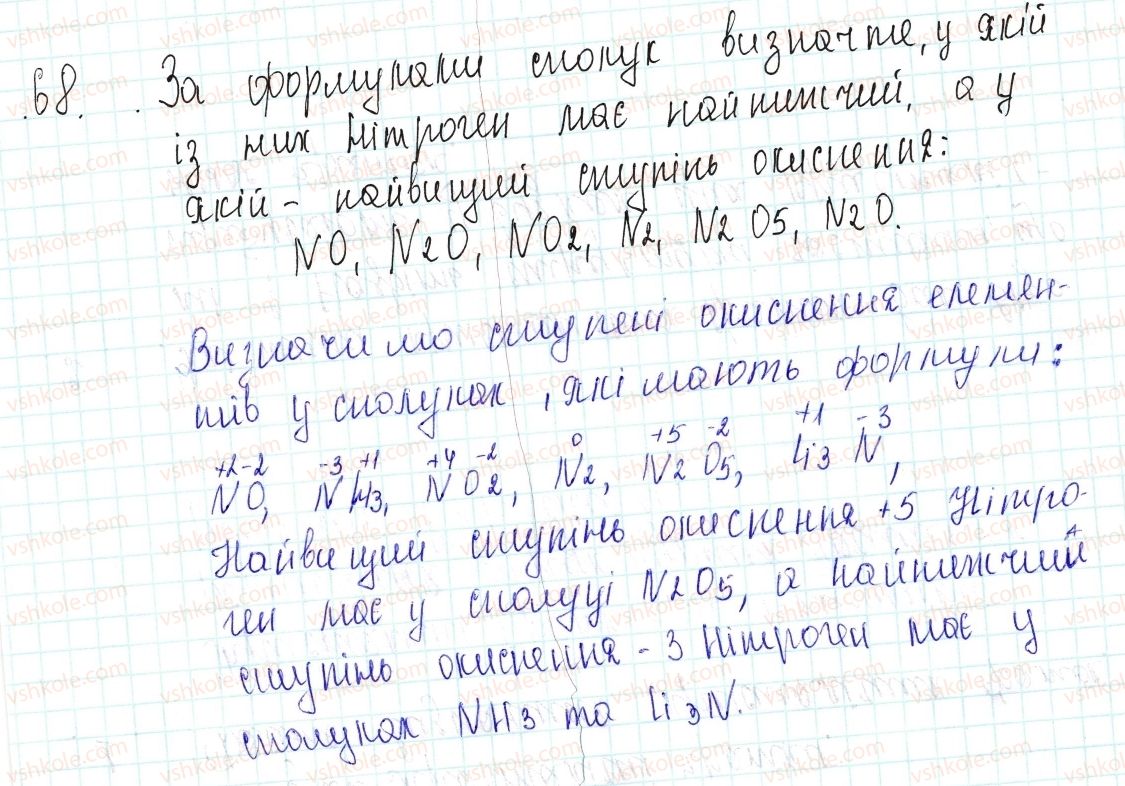 68. За формулами сполук визначте, у якій
із них Нітроген має найнижчий, а у
якій - найвищий ступінь окиснення:
NO, N2O, NO2, N2, N2O5, N2O.
Визначимо ступені окиснення елемен-
тів у сполуках, які мають формули:
+2 -2 -3 +1 +4 -2 0 +5 -2 +1 -3
NO, NH3, NO2, N2, N2O5, Li3N,
Найвищий ступінь окиснення +5 Нітро-
ген має у сполуці N2O5, а найнижчий
ступінь окиснення -3 Нітроген має у
сполуках NH3 та Li3N.
vshkole.com